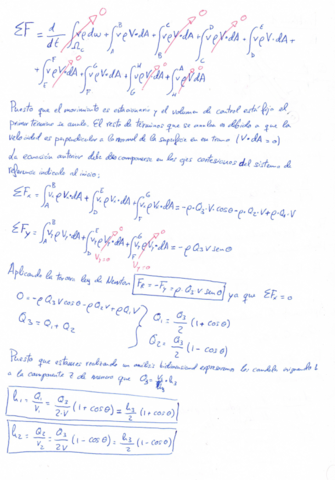 ΣF = d/dt ∫Ωc vρ dω + ∫_A^B vρ V•dA + ∫_B^C vρ V•dA + ∫_C^D vρ V•dA + ∫_D^E vρ V•dA +
+ ∫_E^F vρ V•dA + ∫_F^G vρ V•dA + ∫_G^H vρ V•dA + ∫_H^A vρ V•dA
Puesto que el movimiento es estacionario y el volumen de control está fijo el
primer término es nulo. El resto de términos que se anulan es debido a que la
velocidad es perpendicular a la normal de la superficie en su tramo (V•dA = 0)
La ecuación anterior debe descomponerse en los ejes cartesianos del sistema de
referencia indicado al inicio:
ΣFx = ∫_A^B Vx ρ V•dA + ∫_D^E Vx ρ V•dA + ∫_F^G Vx ρ V•dA = -ρ·Q3·V·cosθ - ρ·Q2·V + ρ·Q1·V
ΣFy = ∫_A^B Vy ρ V•dA + ∫_D^E Vy ρ V•dA + ∫_F^G Vy ρ V•dA = -ρ Q3 V senθ
Vy=0 Vy=0
Aplicando la tercera ley de Newton FR = -Fy = ρ Q3 V senθ ya que ΣFx = 0
0 = -ρ Q3 V cosθ - ρ Q2 V + ρ Q1 V
Q3 = Q1 + Q2
Q1 = Q3/2 (1 + cosθ)
Q2 = Q3/2 (1 - cosθ)
Puesto que estamos realizando un análisis bidimensional expresamos los caudales
a la componente z de manera que Q3 = h3
h1 = Q1/V1 = Q3/2·V (1 + cosθ) = h3/2 (1 + cosθ)
h2 = Q2/V2 = Q3/2V (1 - cosθ) = h3/2 (1 - cosθ)